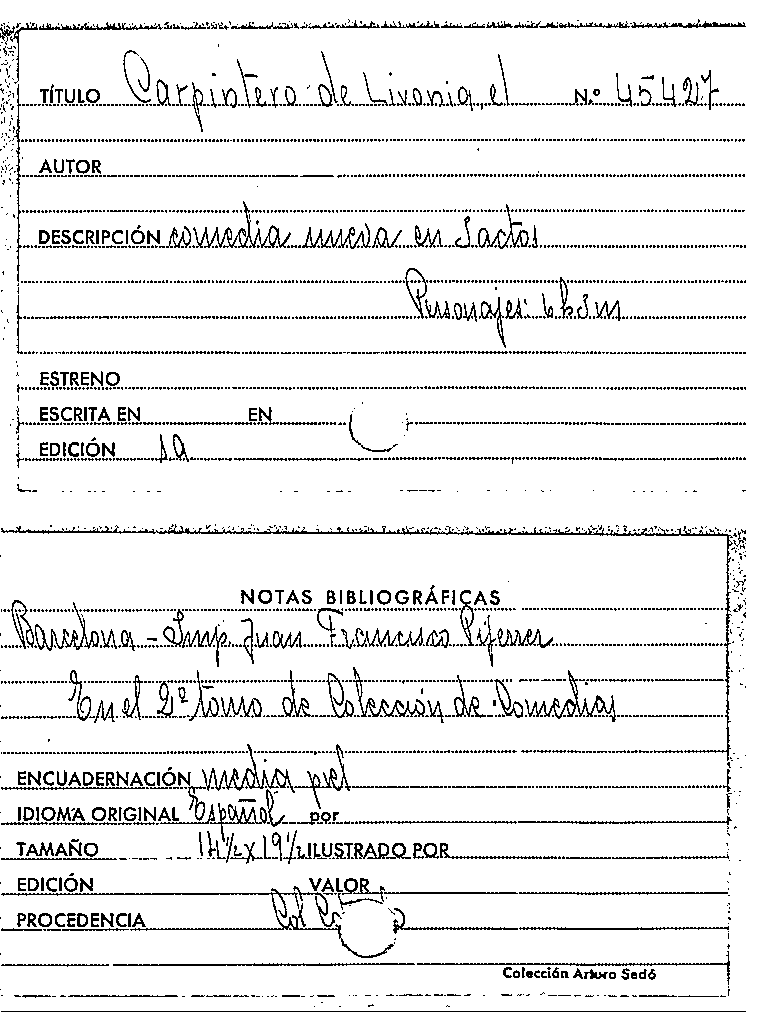 TÍTULO Carpintero de Livonia, el N.º 45427
AUTOR
DESCRIPCIÓN comedia nueva en 3 actos
Personajes: 6h 3m
ESTRENO
ESCRITA EN EN
EDICIÓN sa
NOTAS BIBLIOGRÁFICAS
Barcelona - Imp. Juan Francisco Piferrer
En el 2º tomo de Colección de Comedias
ENCUADERNACIÓN media piel
IDIOMA ORIGINAL Español por
TAMAÑO 14½ x 19½ ILUSTRADO POR
EDICIÓN VALOR
PROCEDENCIA Col
Colección Arturo Sedó